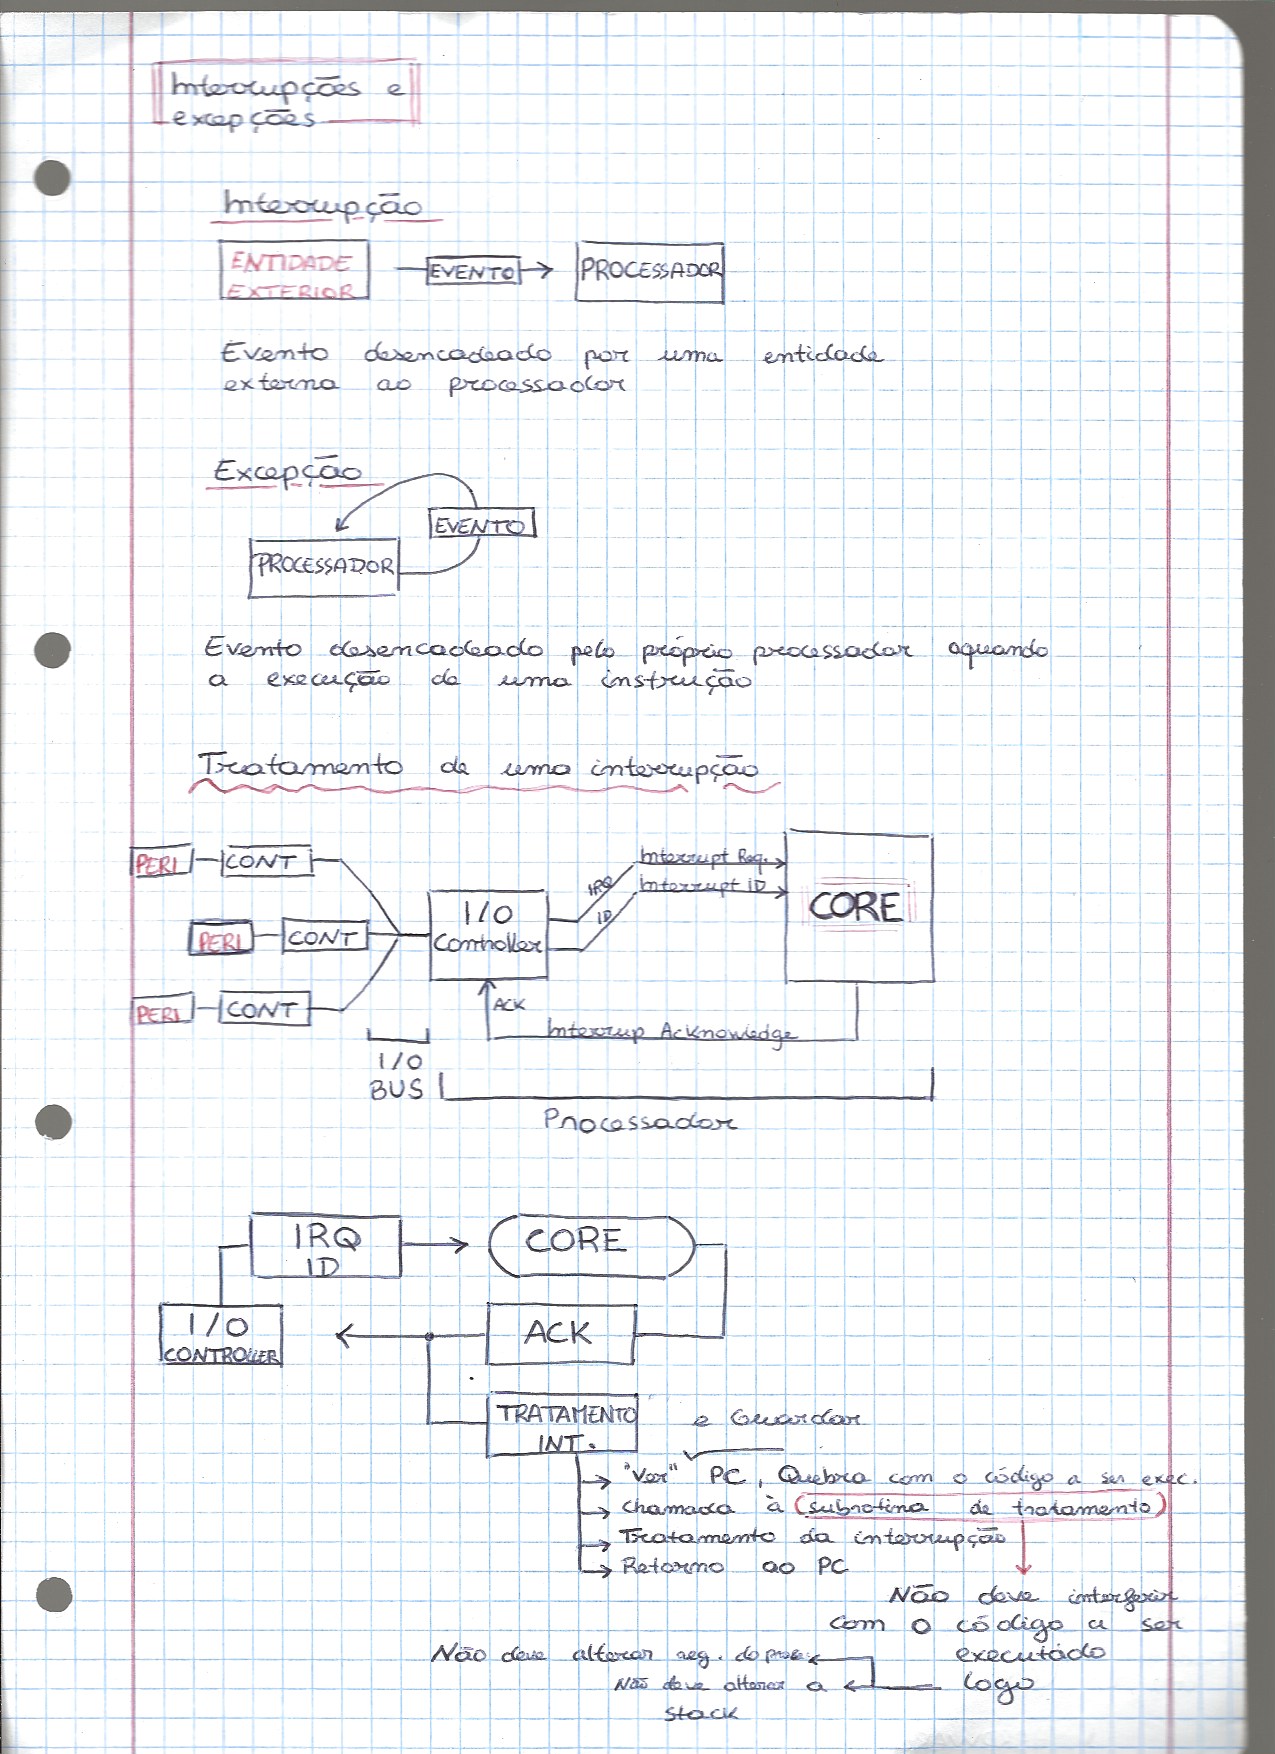 Interrupções e
excepções
Interrupção
ENTIDADE
EXTERIOR
EVENTO
PROCESSADOR
Evento desencadeado por uma entidade
externa ao processador
Excepção
EVENTO
PROCESSADOR
Evento desencadeado pelo próprio processador aquando
a execução de uma instrução
Tratamento de uma interrupção
PERI
CONT
PERI
CONT
PERI
CONT
I/O
Controller
IRQ
ID
Interrupt Req.
Interrupt ID
CORE
ACK
Interrup Acknowledge
I/O
BUS
Processador
IRQ
ID
CORE
I/O
CONTROLLER
ACK
TRATAMENTO
INT.
e Guardar
"Ver" PC, Quebra com o código a ser exec.
Chamada à (subrotina de tratamento)
Tratamento da interrupção
Retorno ao PC
Não deve interferir
com o código a ser
executado
logo
Não deve alterar reg. do proc.
Não deve alterar a
stack